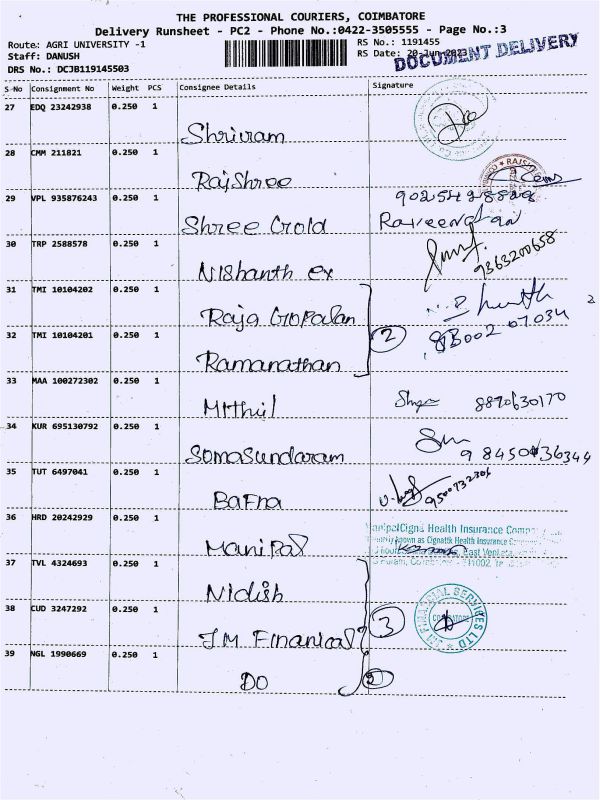 THE PROFESSIONAL COURIERS, COIMBATORE
Delivery Runsheet - PC2 - Phone No.:0422-3505555 - Page No.:3
Route: AGRI UNIVERSITY -1
RS No.: 1191455
Staff: DANUSH
RS Date: 20-Jun-2023
DOCUMENT DELIVERY
DRS No.: DCJB119145503
S-No Consignment No Weight PCS Consignee Details Signature
27 EDQ 23242938 0.250 1
Shriram
28 CMM 211821 0.250 1
RajShree
29 VPL 935876243 0.250 1
Shree Gold
30 TRP 2588578 0.250 1
9363200658
Nishanth ex
31 TMI 10104202 0.250 1
Raja Gopalan
2
32 TMI 10104201 0.250 1
Ramanathan
33 MAA 100272302 0.250 1
Mithil 8870630170
34 KUR 695130792 0.250 1
Somasundaram
35 TUT 6497041 0.250 1
9500732306
Bafna
36 HRD 20242929 0.250 1
Health Insurance
Known as Cignattk Health Insurance
Manipal
37 TVL 4324693 0.250 1
Nidish
38 CUD 3247292 0.250 1
3
JM Finanical
FINANCIAL SERVICES LTD
39 NGL 1990669 0.250 1
DO